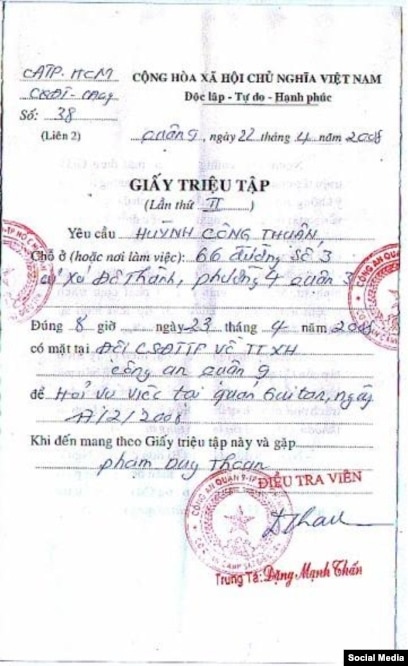 CATP. HCM
CỘNG HÒA XÃ HỘI CHỦ NGHĨA VIỆT NAM
Độc lập - Tự do - Hạnh phúc
Số: 38
(Liên 2)
Quận 9, ngày 22 tháng 4 năm 2008
GIẤY TRIỆU TẬP
(Lần thứ II)
Yêu cầu HUỲNH CÔNG THUẬN
Chỗ ở (hoặc nơi làm việc): 66 đường số 3
cư xá Đô Thành, phường 4 quận 3
Đúng 8 giờ ngày 23 tháng 4 năm 2008
có mặt tại Đội CSĐTTP về TTXH
công an quận 9
để Hỏi vụ việc tại quán Guitar, ngày
/2/2008
Khi đến mang theo Giấy triệu tập này và gặp
phạm Duy Thoan
ĐIỀU TRA VIÊN
Trung Tá: Đặng Mạnh Thấn
Social Media